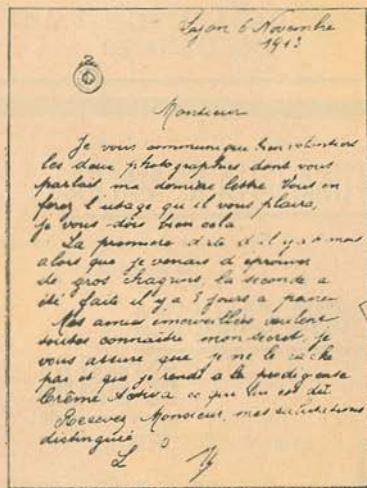 Lyon 6 Novembre
1913
Monsieur
Je vous communique bien volontiers
les deux photographies dont vous
parlait ma dernière lettre Vous en
ferez l'usage qu'il vous plaira,
je vous dois bien cela
La première date d'il y a mois
alors que je venais d'éprouver
de gros chagrins, la seconde a
été faite il y a 3 jours a peine
Mes amies émerveillées veulent
toutes connaître mon secret, je
vous assure que je ne le cache
pas et que je rends a la prodigieuse
Crème Activa ce qui lui est dû
Recevez, Monsieur, mes salutations
distingué
L